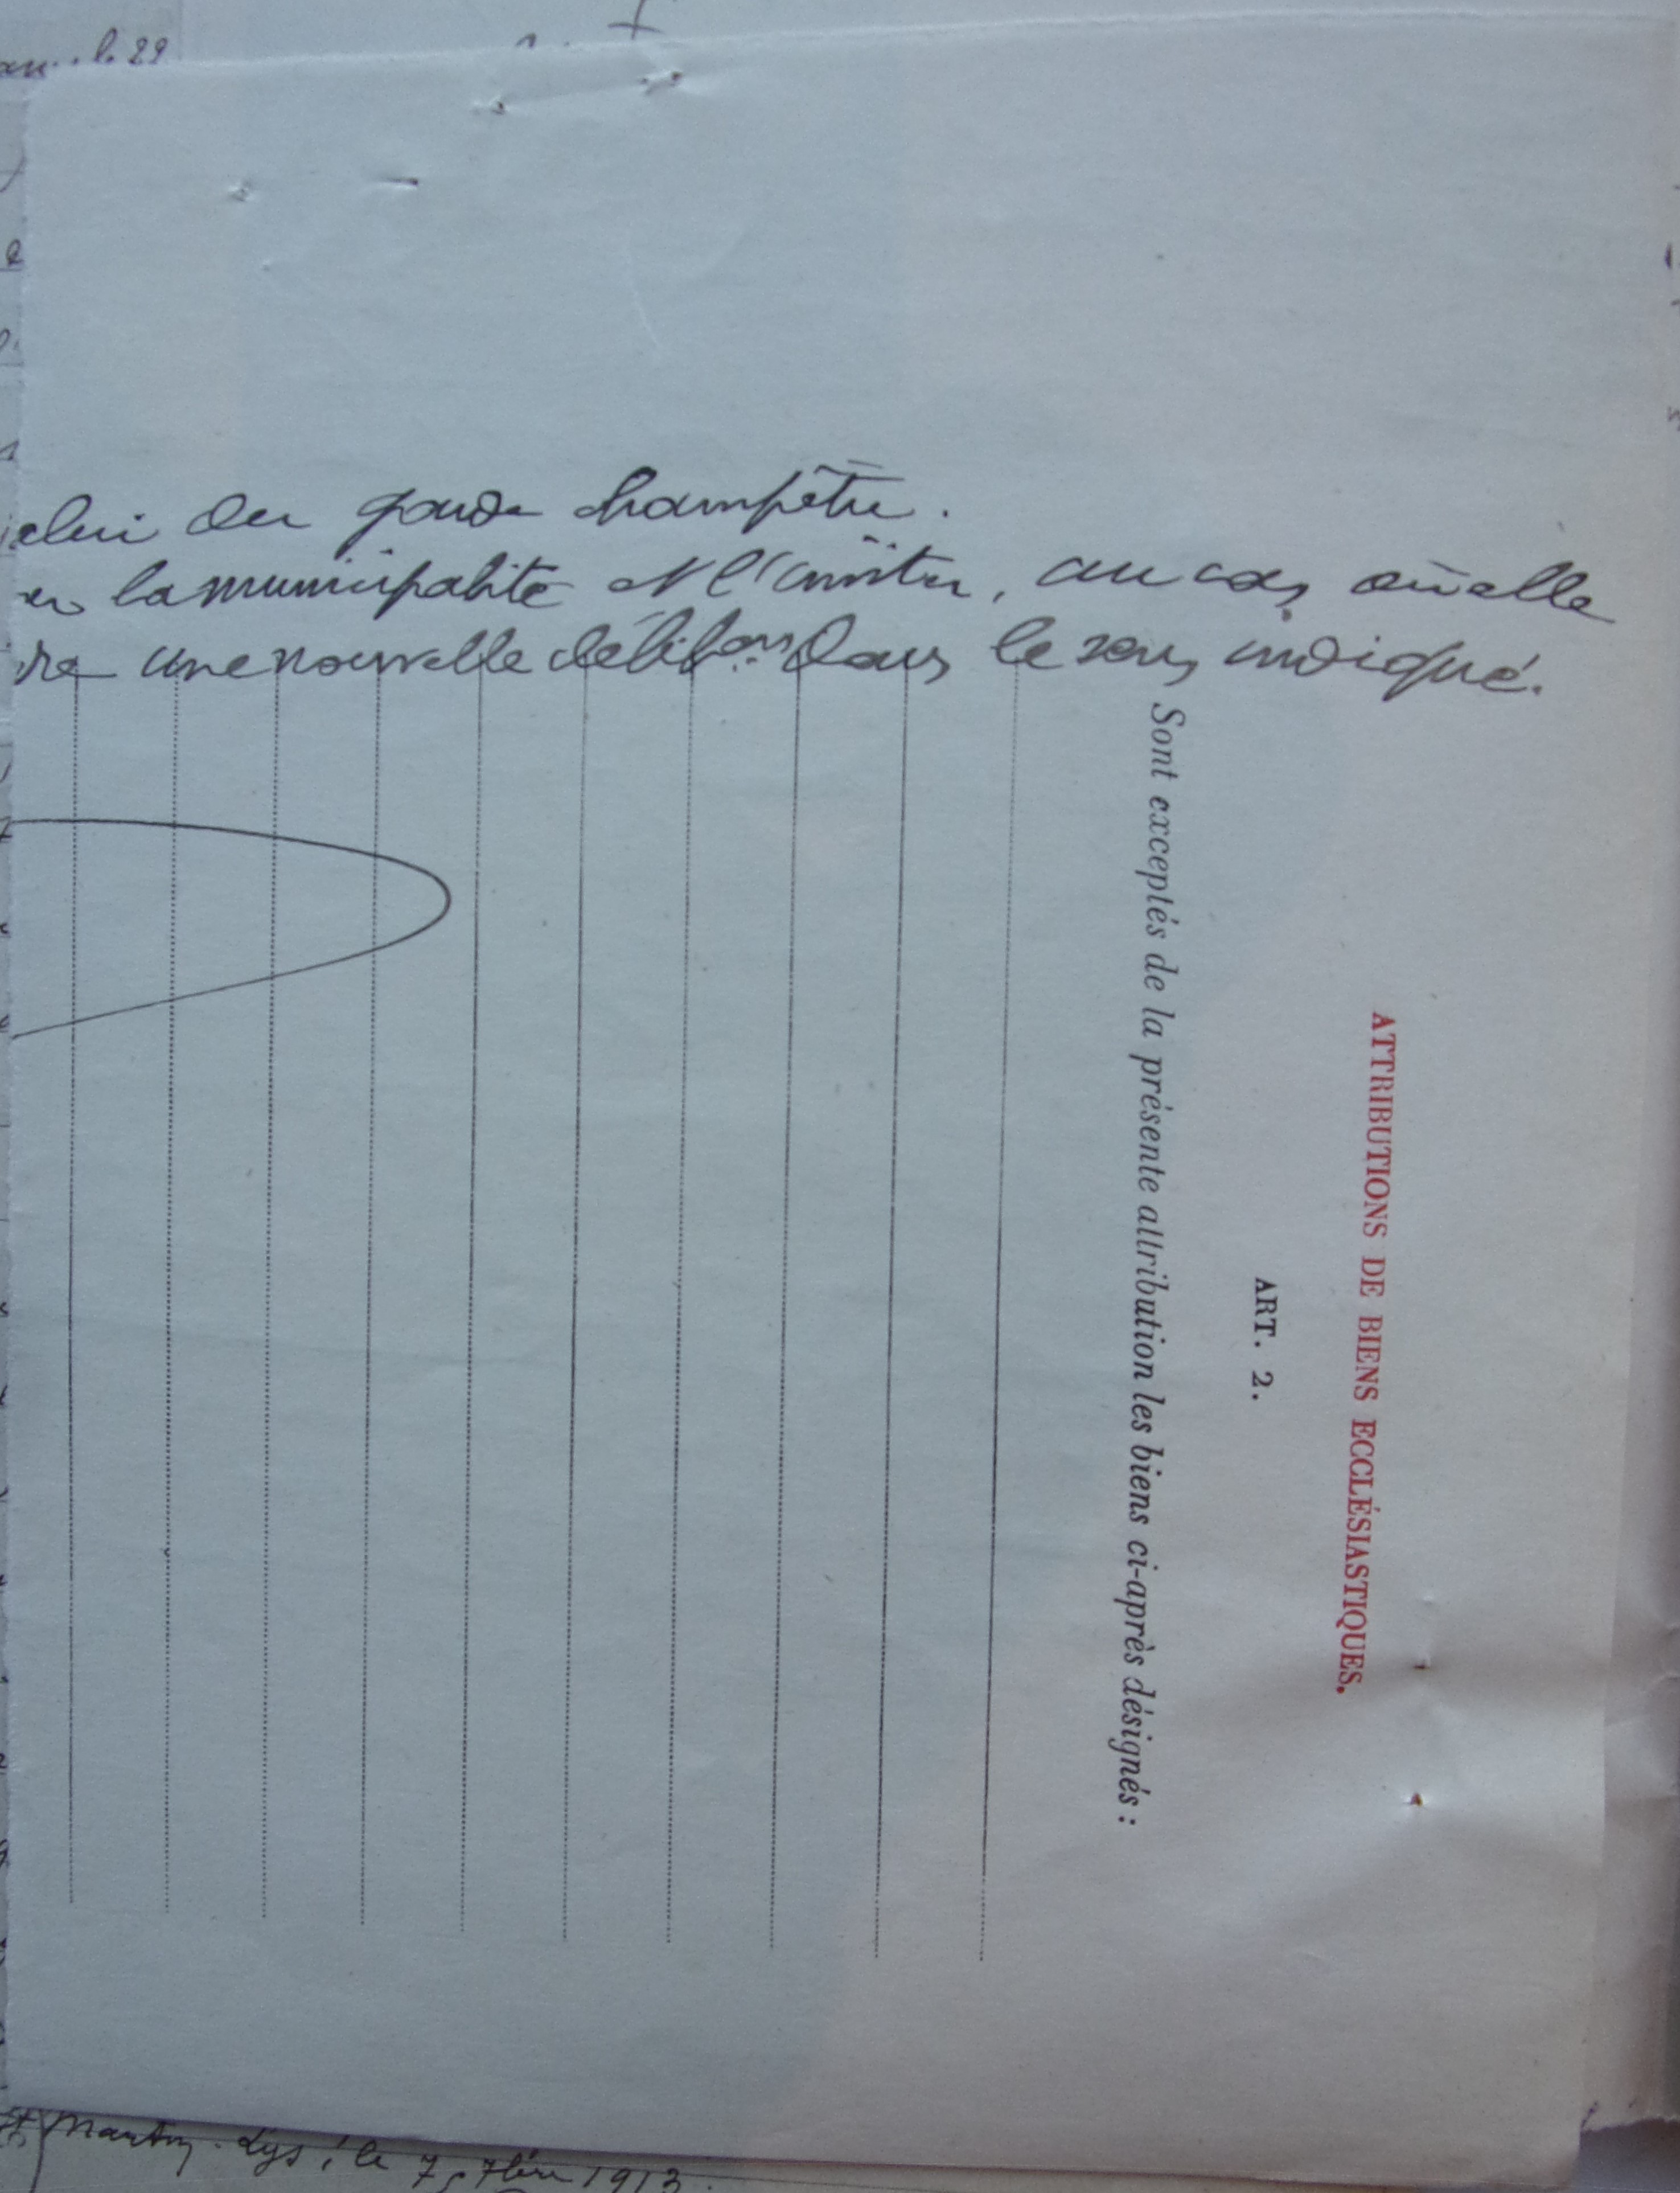 le 29
celui du garde champêtre.
la municipalité et l'inviter, au cas où elle
une nouvelle délibon dans le sens indiqué.
ATTRIBUTIONS DE BIENS ECCLÉSIASTIQUES.
ART. 2.
Sont exceptés de la présente attribution les biens ci-après désignés :
St Martin-Lys, le 7 7bre 1913.